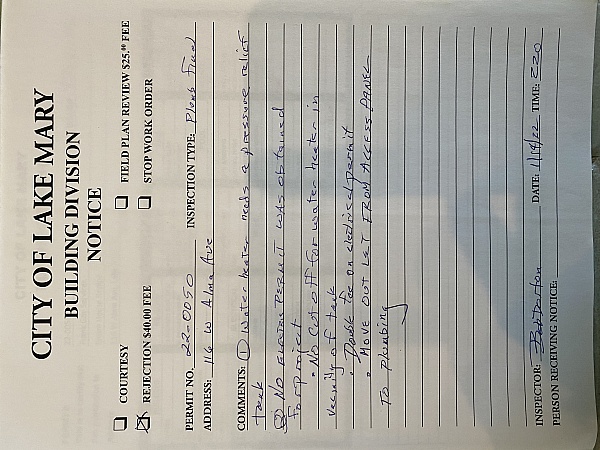 CITY OF LAKE MARY
BUILDING DIVISION
NOTICE
☐ COURTESY ☐ FIELD PLAN REVIEW $25.00 FEE
☒ REJECTION $40.00 FEE ☐ STOP WORK ORDER
PERMIT NO. 22-0050 INSPECTION TYPE: Plumb Final
ADDRESS: 116 W Alma Ave
COMMENTS: ① Water heater needs a pressure relief
tank
② NO Electric PERMIT was obtained
for project
• No cutoff for water heater in
vecinity of tank
• Double fee on electrical permit
• MOVE OUTLET FROM ACCESS PANEL
To Plumbing
INSPECTOR: DATE: 1/19/22 TIME: 220
PERSON RECEIVING NOTICE: